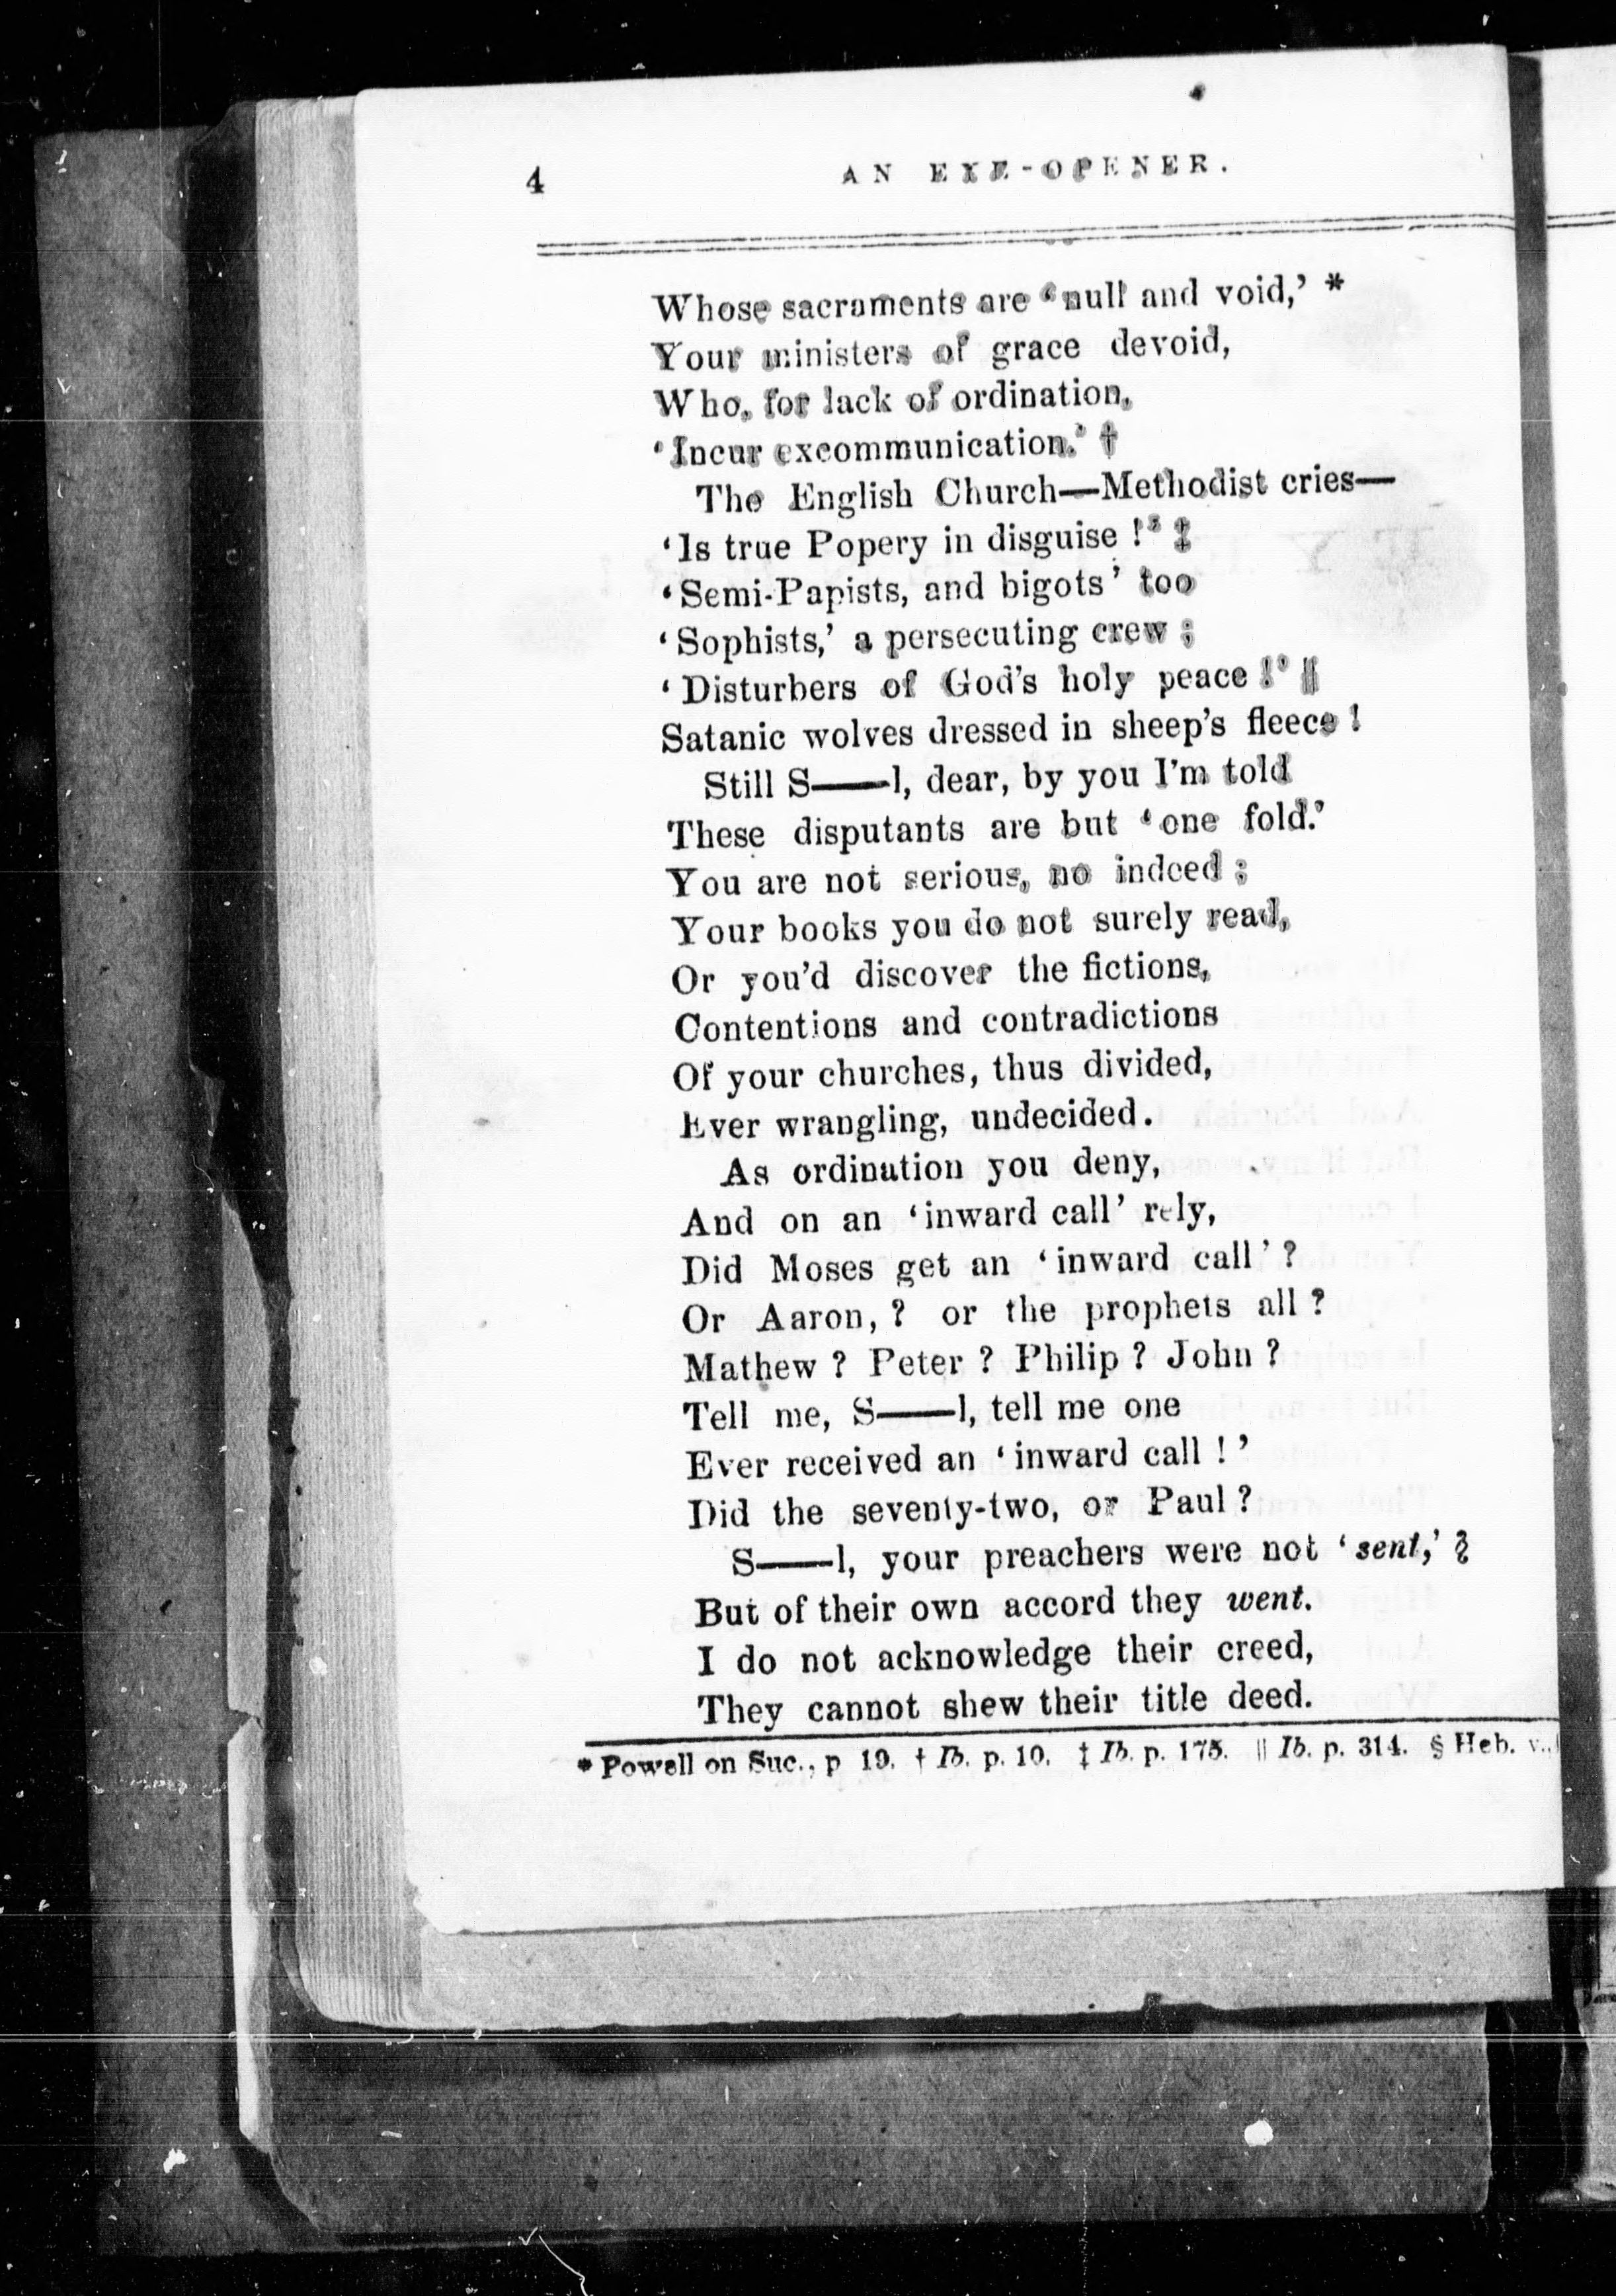 4
AN EYE-OPENER.
Whose sacraments are ‘null and void,’ *
Your ministers of grace devoid,
Who, for lack of ordination,
‘Incur excommunication.’ †
The English Church—Methodist cries—
‘Is true Popery in disguise !’ ‡
‘Semi-Papists, and bigots’ too
‘Sophists,’ a persecuting crew ;
‘Disturbers of God's holy peace !’ ||
Satanic wolves dressed in sheep's fleece !
Still S——l, dear, by you I'm told
These disputants are but ‘one fold.’
You are not serious, no indeed ;
Your books you do not surely read,
Or you'd discover the fictions,
Contentions and contradictions
Of your churches, thus divided,
Ever wrangling, undecided.
As ordination you deny,
And on an ‘inward call’ rely,
Did Moses get an ‘inward call’ ?
Or Aaron, ? or the prophets all ?
Mathew ? Peter ? Philip ? John ?
Tell me, S——l, tell me one
Ever received an ‘inward call !’
Did the seventy-two, or Paul ?
S——l, your preachers were not ‘sent,’ §
But of their own accord they went.
I do not acknowledge their creed,
They cannot shew their title deed.
* Powell on Suc., p 19. † Ib. p. 10. ‡ Ib. p. 175. || Ib. p. 314. § Heb. v.,